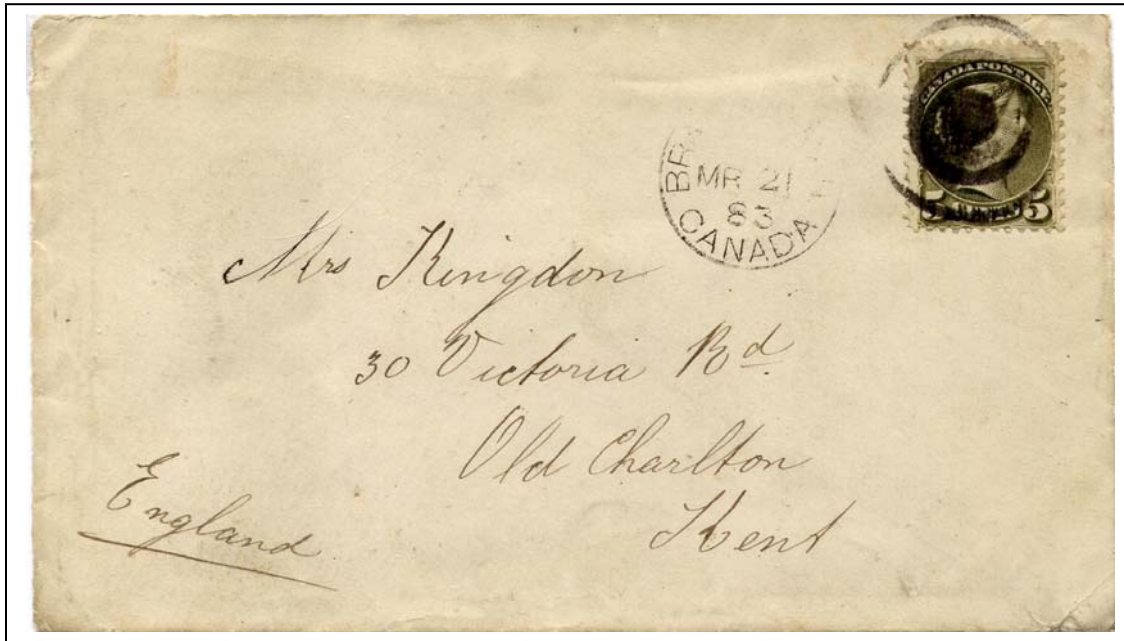 CANADA POSTAGE
5 CENTS 5
MR 21
83
CANADA
Mrs Kingdon
30 Victoria Rd.
Old Charlton
Kent
England